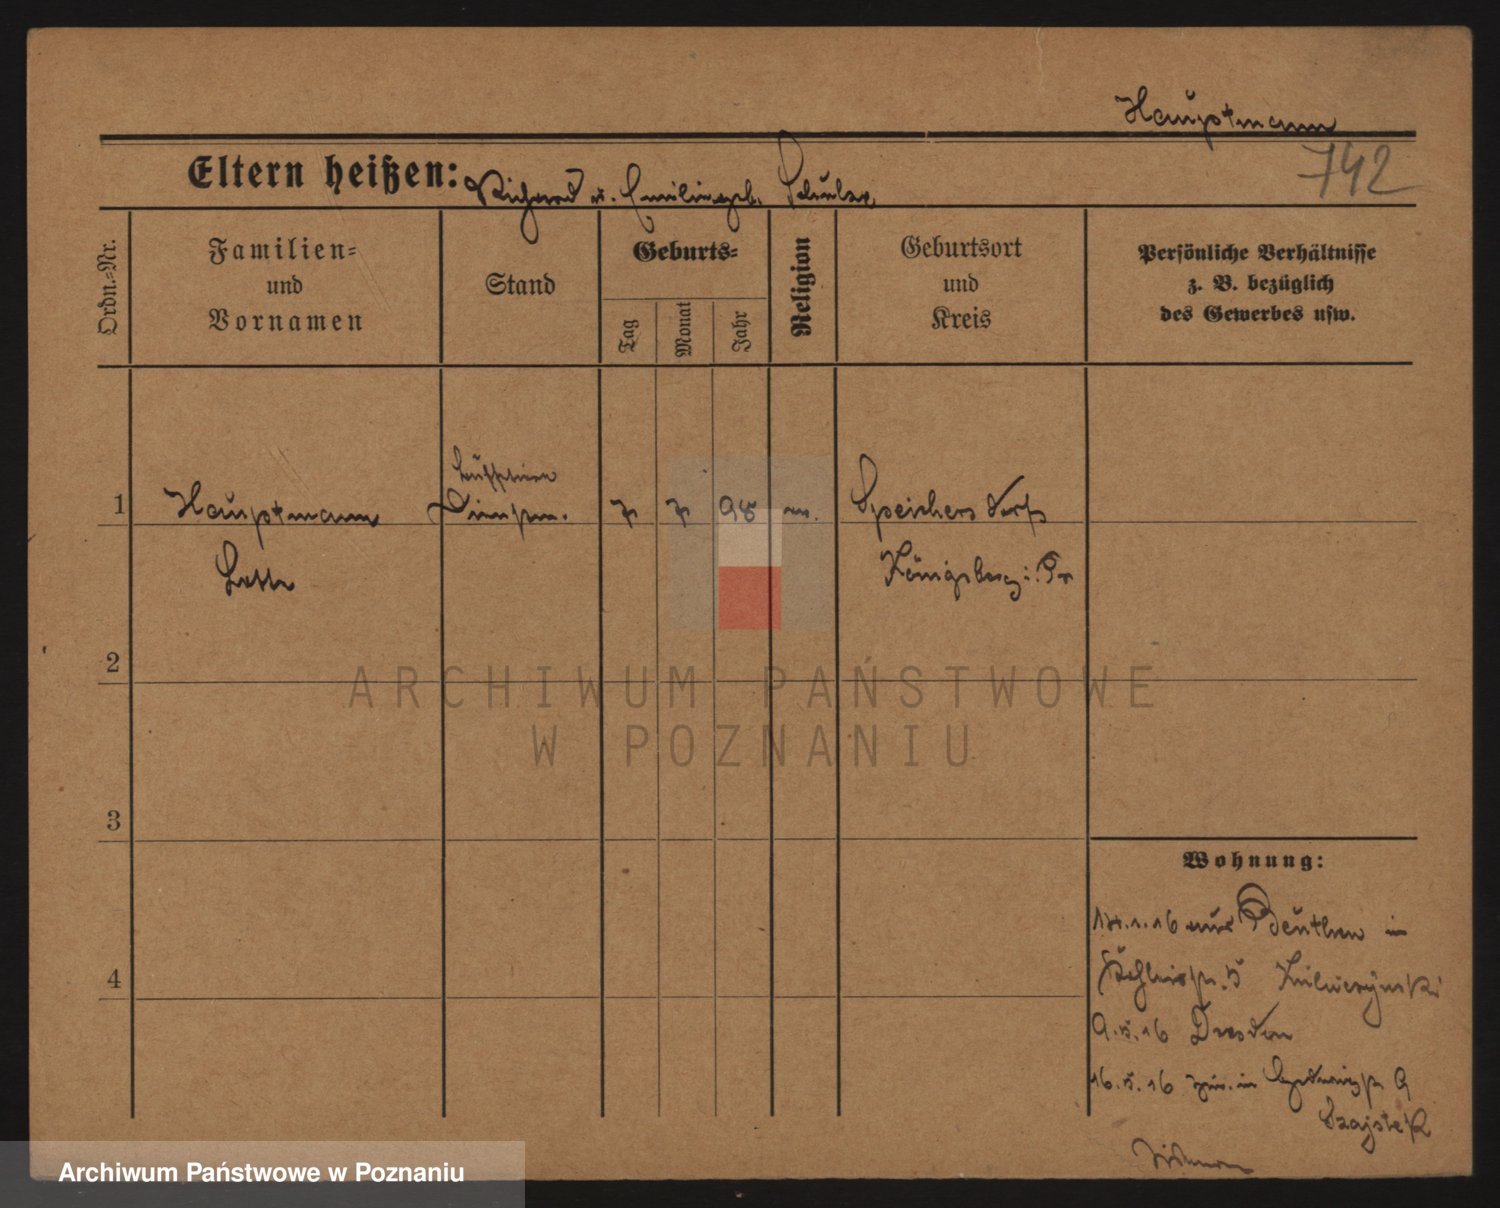 Hauptmann
742
Eltern heißen: Richard u. Emilie geb. Schulze
Ordn.-Nr.
Familien-
und
Vornamen
Stand
Geburts-
Tag
Monat
Jahr
Religion
Geburtsort
und
Kreis
Persönliche Verhältnisse
z. B. bezüglich
des Gewerbes usw.
1
Hauptmann
98
Speichersdorf
Königsberg i. Pr
2
3
4
ARCHIWUM PAŃSTWOWE
W POZNANIU
Wohnung:
1.16 aus Beuthen in
5
9.5.16 Dresden
16.5.16 in 9
Szajstek
Archiwum Państwowe w Poznaniu